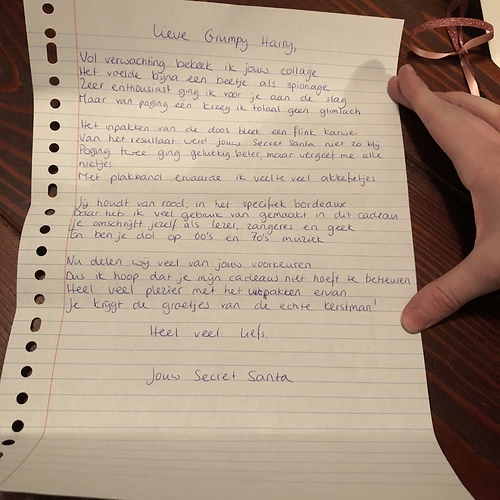 Lieve Grumpy Harry,
Vol verwachting bekeek ik jouw collage
Het voelde bijna een beetje als spionage
Zeer enthousiast ging ik voor je aan de slag
Maar van poging één kreeg ik totaal geen glimlach
Het inpakken van de doos bleek een flink karwei
Van het resultaat werd jouw Secret Santa niet zo blij
Poging twee ging gelukkig beter, maar vergeet me alle
nietjes
Met plakband ervaarde ik veel te veel akkefietjes
Jij houdt van rood, in het specifiek bordeaux
Daar heb ik veel gebruik van gemaakt in dit cadeau
Je omschrijft jezelf als lezer, zangeres en geek
En ben je dol op 60's en 70's muziek
Nu delen wij veel van jouw voorkeuren
Dus ik hoop dat je mijn cadeaus niet hoeft te betreuren
Heel veel plezier met het uitpakken ervan
Je krijgt de groetjes van de echte kerstman!
Heel veel liefs,
Jouw Secret Santa